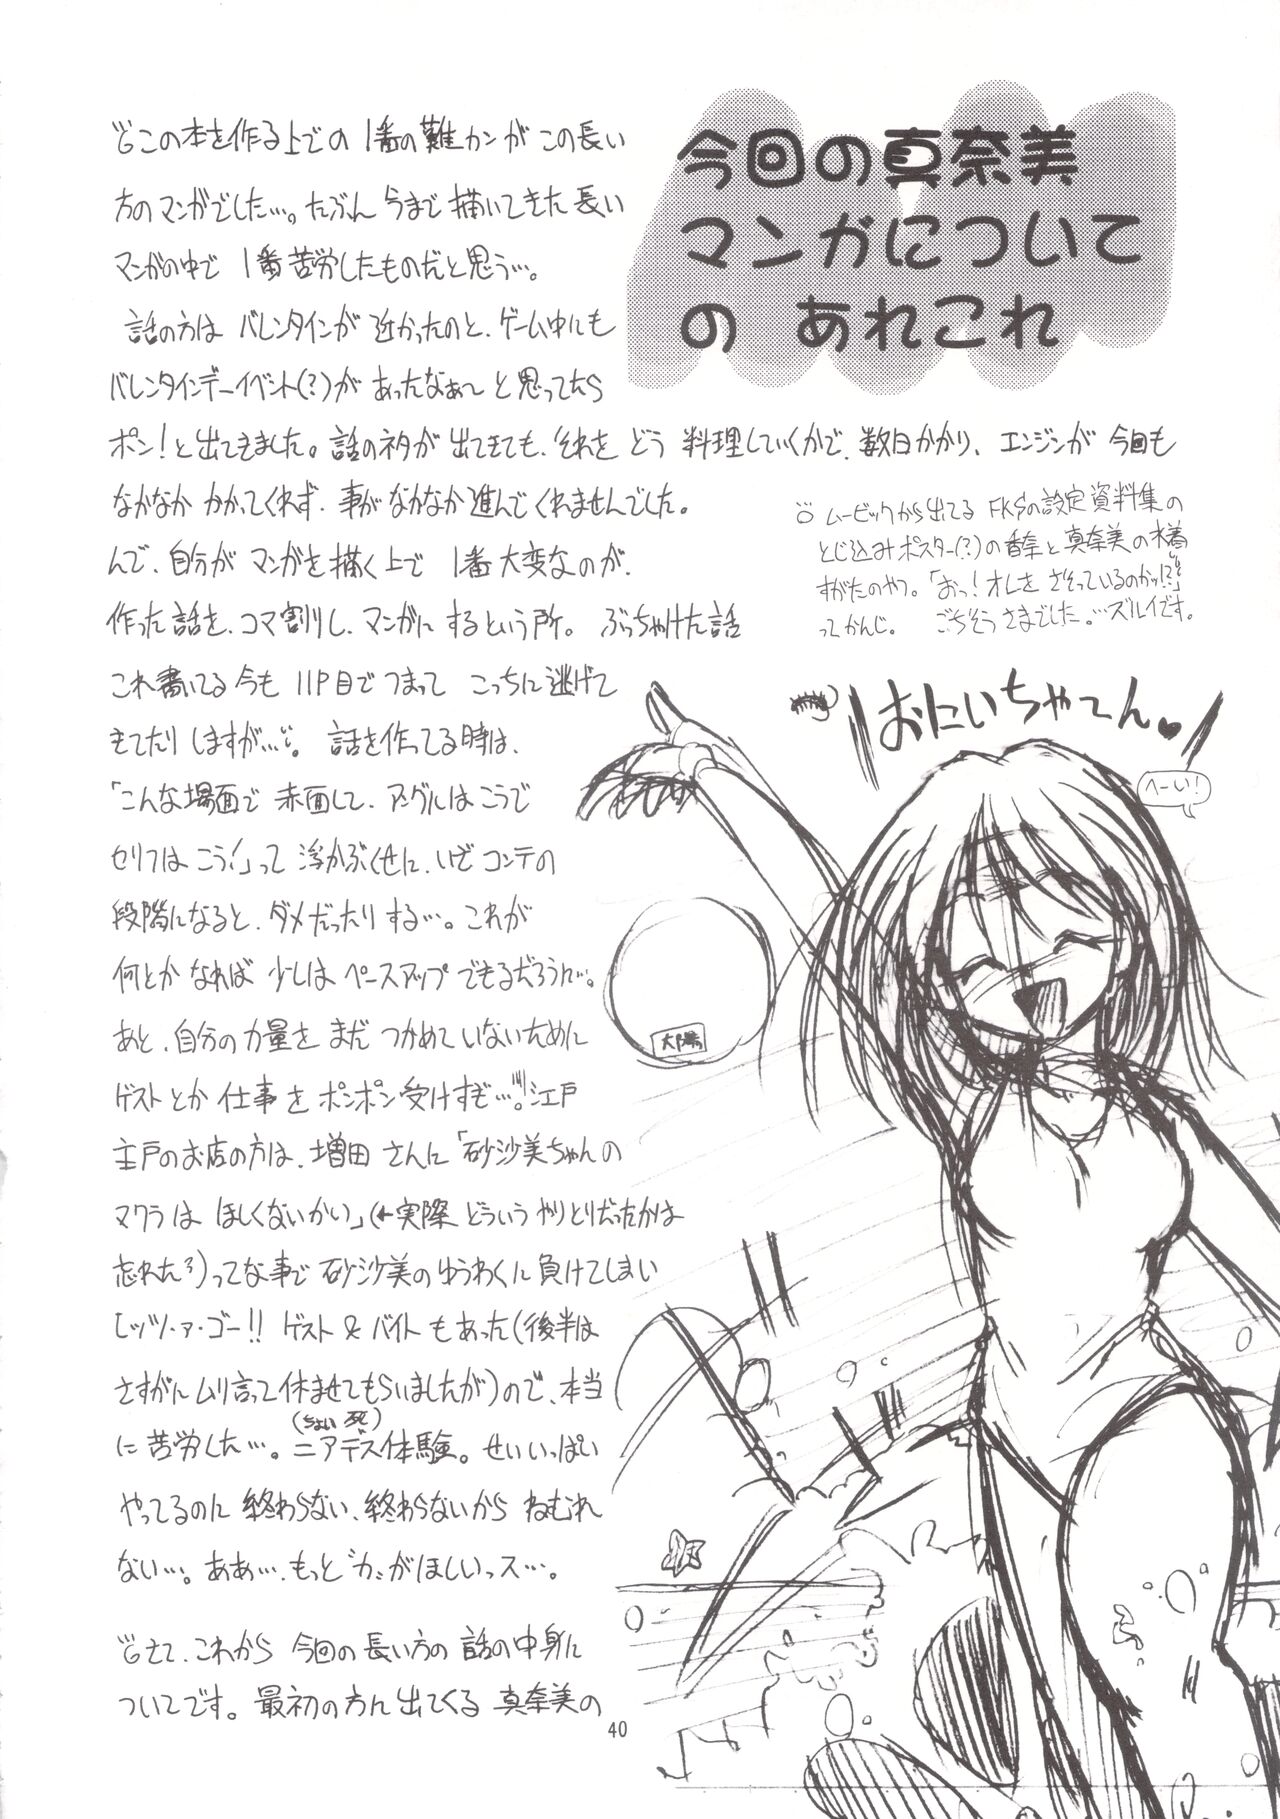 今回の真奈美
マンガについて
の あれこれ
この本を作る上での 1番の難カンが この長い
方のマンガでした…。たぶん 今まで 描いてきた 長い
マンガの中で 1番苦労したものだと思う…。
話の方は バレンタインが 近かったのと、ゲーム中にも
バレンタインデーイベント(?)が あったなぁ〜 と 思ってたら
ポン!と出てきました。話のネタが 出てきても、それを どう 料理していくかで、数日かかり、エンジンが 今回も
なかなか かかってくれず、事が なかなか 進んで くれませんでした。
んで、自分が マンガを 描く上で 1番大変なのが、
作った話を、コマ割りし、マンガに するという所。 ぶっちゃけた話
これ書いてる今も 11P目で つまって こっちに逃げて
きてたり しますが…。話を作ってる時は、
「こんな場面で 赤面して、アングルはこうで
セリフは こう!」って 浮かぶくせに、いざ コンテの
段階になると、ダメだったり する…。これが
何とか なれば 少しは ペースアップ できるだろうに…。
あと、自分の力量を まだ つかめて いないために
ゲストとか 仕事 を ポンポン 受けすぎ…。江戸
主戸のお店の方は、増田 さんに 「砂沙美ちゃんの
マクラは ほしくないかい」(←実際 どういう やりとりだったかは
忘れた)ってな事で 砂沙美の ゆうわくに 負けてしまい
レッツ・ァ・ゴー!! ゲスト & バイト もあった(後半は
さすがに ムリ言って 休ませてもらいましたが)ので、本当
に 苦労した…。ニアデス体験。せいいっぱい
(ちょい 死)
やってるのに 終わらない、終わらないから ねむれ
ない…。ああ…、もっと"力"がほしいっス…。
さて、これから 今回の 長い方の 話の中身に
ついてです。最初の方に 出てくる 真奈美の
ムービックから出てる FKSの設定資料集の
とじ込みポスター(?)の香奈と真奈美の水着
すがたのやつ。「おっ!オレを さそっているのかッ!?」
ってかんじ。 ごちそうさまでした。…ズルイです。
おにいちゃてん♥
へーい!
太陽
40